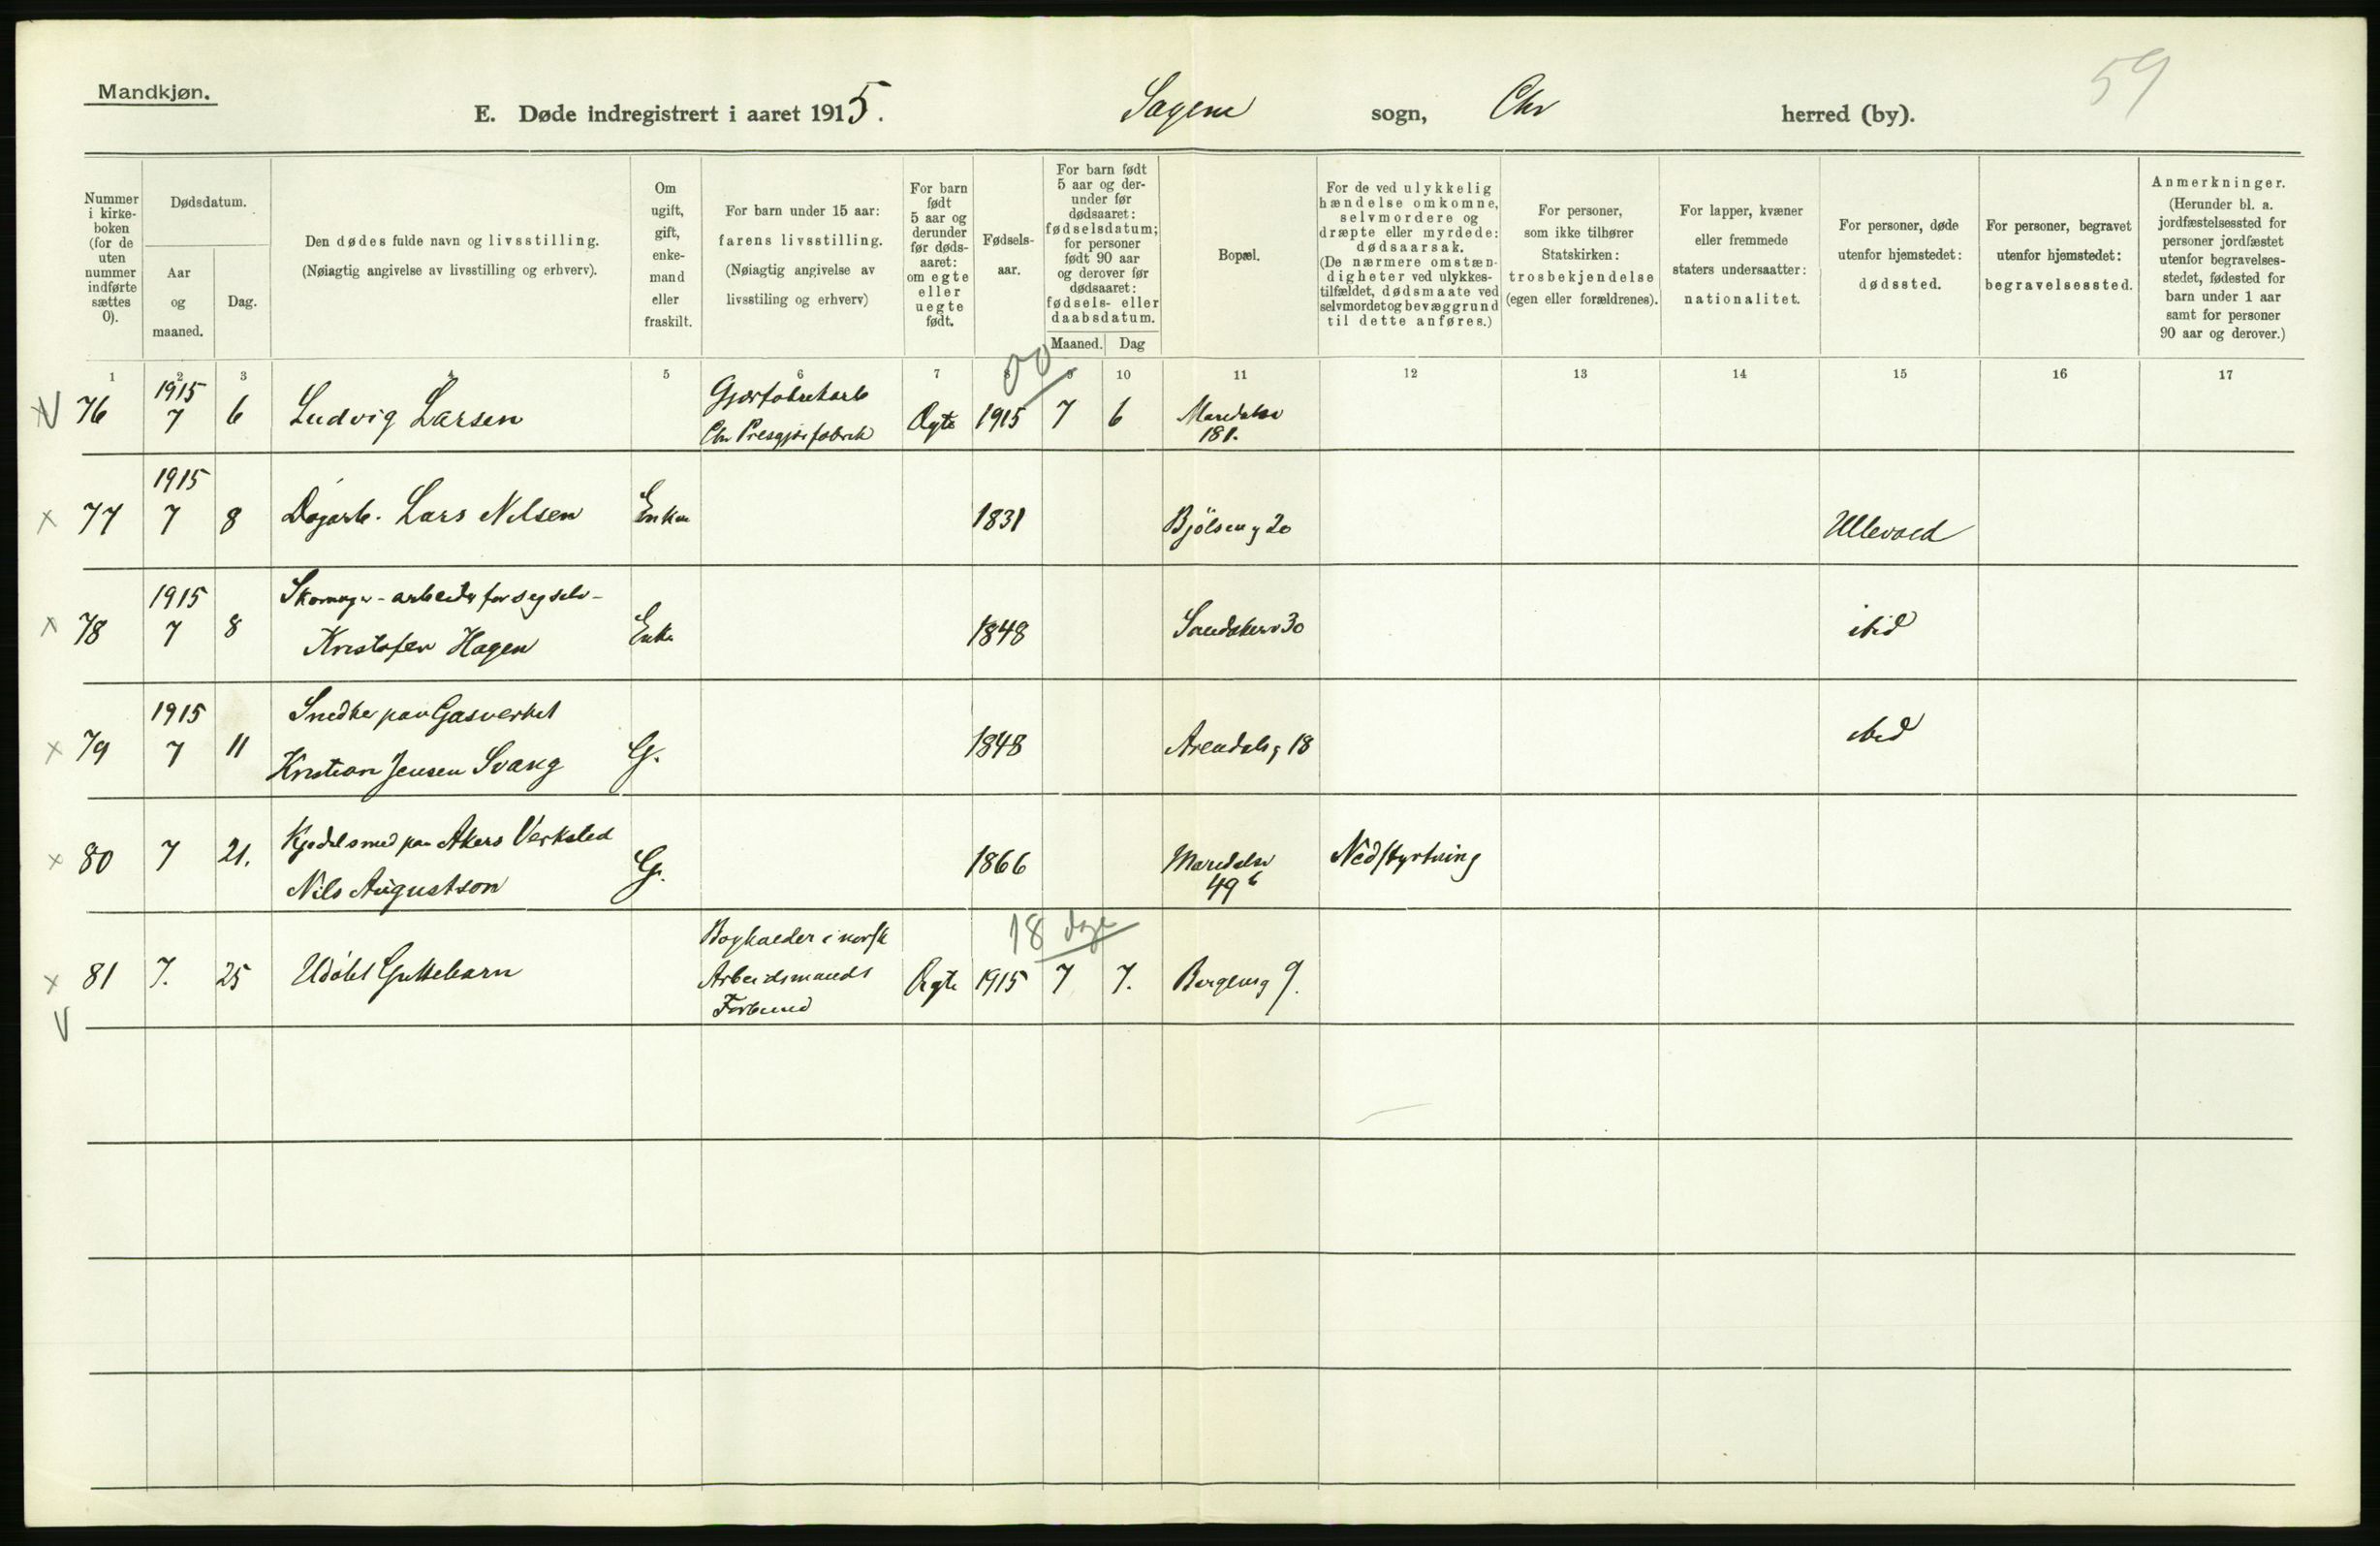 Mandkjøn.
E. Døde indregistrert i aaret 1915. Sagene sogn, Chr herred (by).
59
Nummer i kirke-boken (for de uten nummer indførte sættes 0).
Dødsdatum.
Aar og maaned.
Dag.
Den dødes fulde navn og livsstilling.
(Nøiagtig angivelse av livsstilling og erhverv).
Om ugift, gift, enke-mand eller fraskilt.
For barn under 15 aar: farens livsstilling.
(Nøiagtig angivelse av livsstiling og erhverv)
For barn født 5 aar og derunder før døds-aaret: om egte eller uegte født.
Fødsels-aar.
For barn født 5 aar og der-under før dødsaaret: fødselsdatum; for personer født 90 aar og derover før dødsaaret: fødsels- eller daabsdatum.
Maaned. Dag
Bopæl.
For de ved ulykkelig hændelse omkomne, selvmordere og dræpte eller myrdede: dødsaarsak.
(De nærmere omstæn-digheter ved ulykkes-tilfældet, dødsmaate ved selvmordet og bevæggrund til dette anføres.)
For personer, som ikke tilhører Statskirken: trosbekjendelse (egen eller forældrenes).
For lapper, kvæner eller fremmede staters undersaatter: nationalitet.
For personer, døde utenfor hjemstedet: dødssted.
For personer, begravet utenfor hjemstedet: begravelsessted.
Anmerkninger.
(Herunder bl. a. jordfæstelsessted for personer jordfæstet utenfor begravelses-stedet, fødested for barn under 1 aar samt for personer 90 aar og derover.)
1 2 3 4 5 6 7 8 9 10 11 12 13 14 15 16 17
00
1915 Gjærfabrikarb
76 7 6 Ludvig Larsen Chr Presgjærfabrik Ægte 1915 7 6 Maridalsv
181.
1915
77 7 8 Dagarb. Lars Nilsen Enkem 1831 Bjölseng 20 Ullevaal
1915 Skomager - arbeider for seg selv -
78 7 8 Kristofer Hagen Enke 1848 Sandakerv 30 ibid
1915 Snedker paa Gasverket
79 7 11 Kristian Jensen Svang G. 1848 Arendalsg 18 ibid
Kjedelsmed paa Akers Verksted
80 7 21. Nils Augustson G. 1866 Maridalsv 49 b Nedstyrtning
18 dage
Bogholder i norsk
81 7. 25 Udöbt Guttebarn Arbeidsmands Ægte 1915 7 7. Bergensg 9.
Forbund